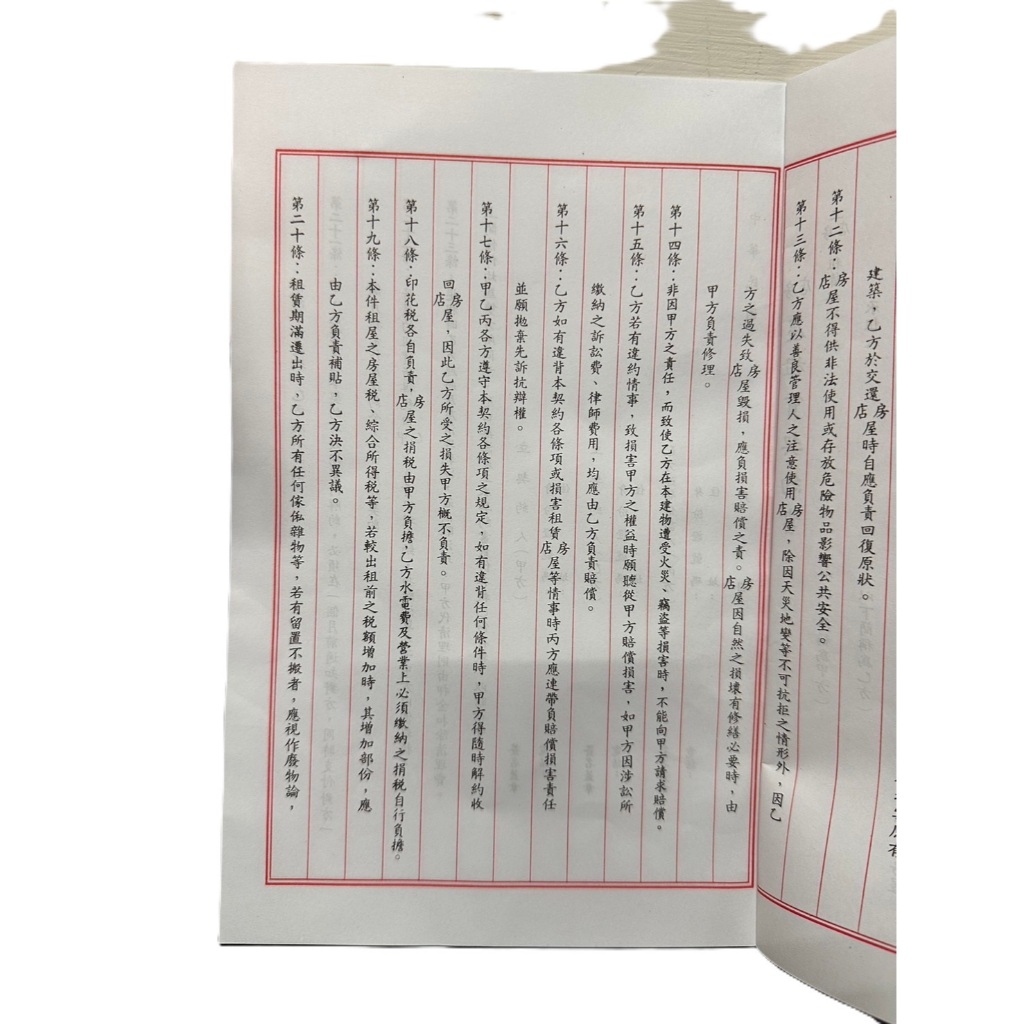 建築，乙方於交還房店屋時自應負責回復原狀。
第十二條：房店屋不得供非法使用或存放危險物品影響公共安全。
第十三條：乙方應以善良管理人之注意使用房店屋，除因天災地變等不可抗拒之情形外，因乙
方之過失致房店屋毀損，應負損害賠償之責。房店屋因自然之損壞有修繕必要時，由
甲方負責修理。
第十四條：非因甲方之責任，而致使乙方在本建物遭受火災、竊盜等損害時，不能向甲方請求賠償。
第十五條：乙方若有違約情事，致損害甲方之權益時願聽從甲方賠償損害，如甲方因涉訟所
繳納之訴訟費、律師費用，均應由乙方負責賠償。
第十六條：乙方如有違背本契約各條項或損害租賃房店屋等情事時丙方應連帶負賠償損害責任
並願拋棄先訴抗辯權。
第十七條：甲乙丙各方遵守本契約各條項之規定，如有違背任何條件時，甲方得隨時解約收
回房店屋，因此乙方所受之損失甲方概不負責。
第十八條：印花稅各自負責，房店屋之捐稅由甲方負擔，乙方水電費及營業上必須繳納之捐稅自行負擔。
第十九條：本件租屋之房屋稅、綜合所得稅等，若較出租前之稅額增加時，其增加部份，應
由乙方負責補貼，乙方決不異議。
第二十條：租賃期滿遷出時、乙方所有任何傢俬雜物等，若有留置不搬者，應視作廢物論，